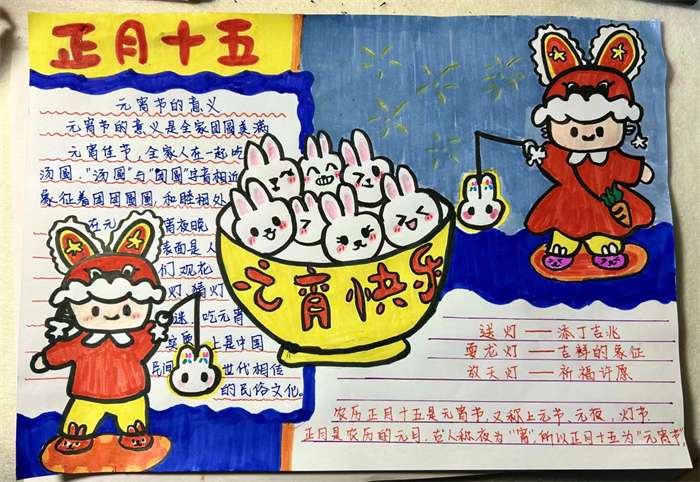 正月十五
元宵节的意义
元宵节的意义是全家团圆美满
元宵佳节,全家人在一起吃
汤圆,"汤圆"与"团圆"字音相近
象征着团团圆圆,和睦相处
在元宵夜晚
表面是人
们观花
灯,猜灯
迷,吃元宵
实际上是中国
民间世代相传
的民俗文化。
元宵快乐
送灯——添丁吉兆
耍龙灯——吉祥的象征
放天灯——祈福许愿
农历正月十五是元宵节,又称上元节、元夜,灯节
正月是农历的元月,古人称夜为"宵",所以正月十五为"元宵节"